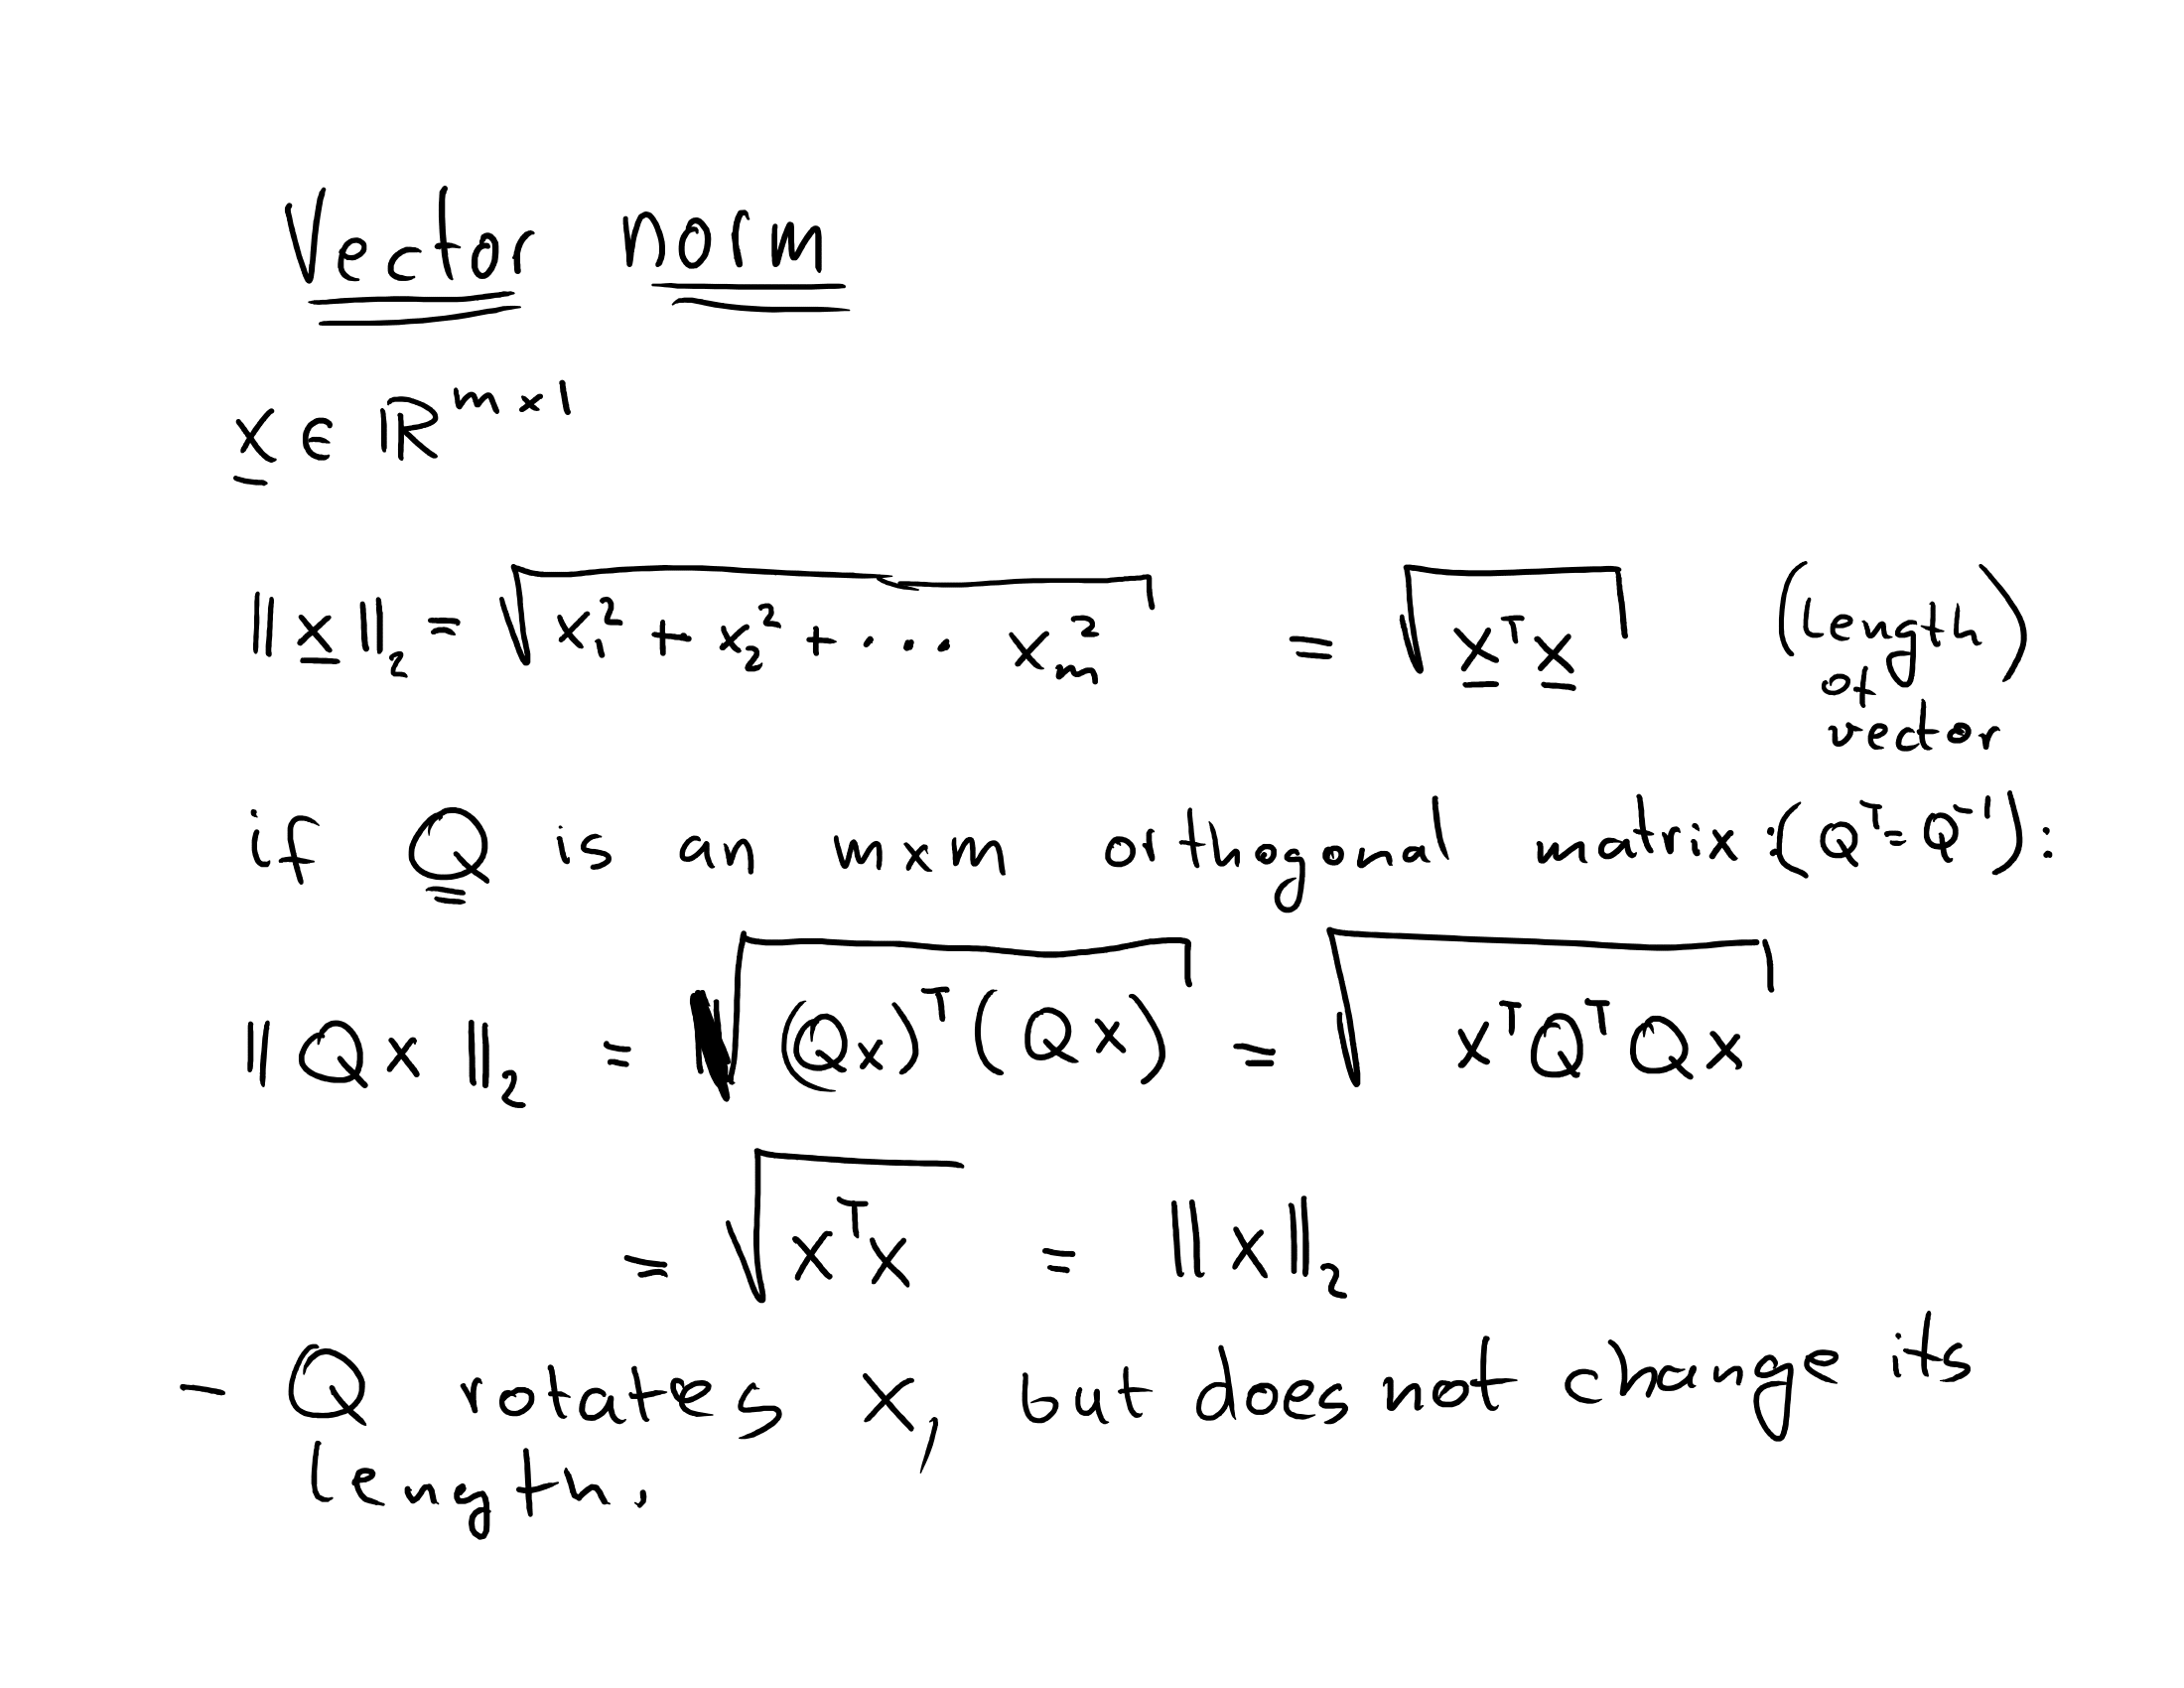 Vector norm
x ∈ ℝ^{m×1}
‖x‖₂ = √(x₁² + x₂² + ... xₘ²) = √(xᵀx) (length
of
vector)
if Q is an m×m orthogonal matrix: (Qᵀ=Q⁻¹):
‖Qx‖₂ = √((Qx)ᵀ(Qx)) = √(xᵀQᵀQx)
= √(xᵀx) = ‖x‖₂
- Q rotates x, but does not change its
length.